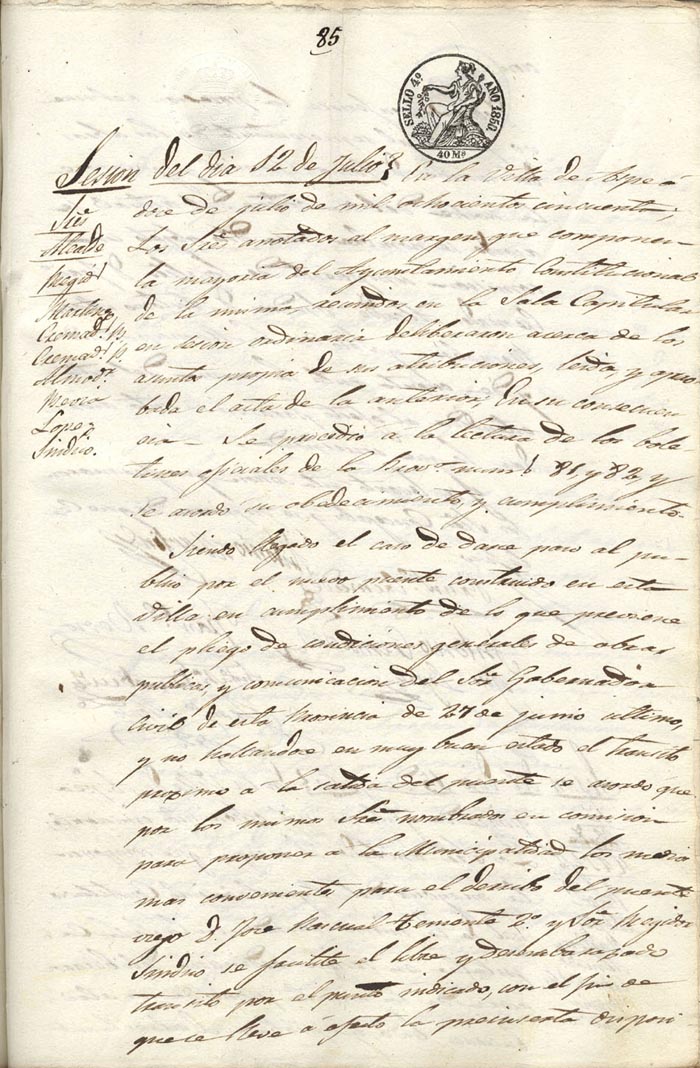 85
SELLO 4º AÑO 1850
40 Ms
Sesion del dia 12 de Julio En la Villa de Aspe á
Sres
Alcalde
Regids
Martinez
Cremads
Cremads
Almodr
Pevia
Lopez
Sindico.
doce de julio de mil ochocientos cincuenta;
Los Sres anotados al margen que componen
la mayoria del Ayuntamiento Constitucional
de la misma reunidos en la Sala Capitular
en sesion ordinaria deliberaron acerca de los
asuntos propios de sus atribuciones, leida y apro
bada el acta de la anterior, En su consecuen
cia = Se procedió a la lectura de los bole
tines oficiales de la Provª num.s 81, y 82, y
se acordó su obedecimiento, y cumplimiento.
Siendo llegado el caso de darse paso al pu
blico por el nuevo puente construido en esta
Villa en cumplimiento de lo que previene
el pliego de condiciones generales de obras
publicas, y comunicacion del Sor Gobernador
Civil de esta Provincia de 27 de junio ultimo,
y no hallandose en muy buen estado el transito
proximo á la salida del puente se acordó que
por los mismos Sres nombrados en comision
para proponer á la Municipalidad los medios
mas convenientes para el derribo del puente
viejo D. José Pascual 2º y Sor Regidor
Sindico se facilite el libre y desembarazado
transito por el punto indicado, con el fin de
que se lleve á efecto la preinserta disposi